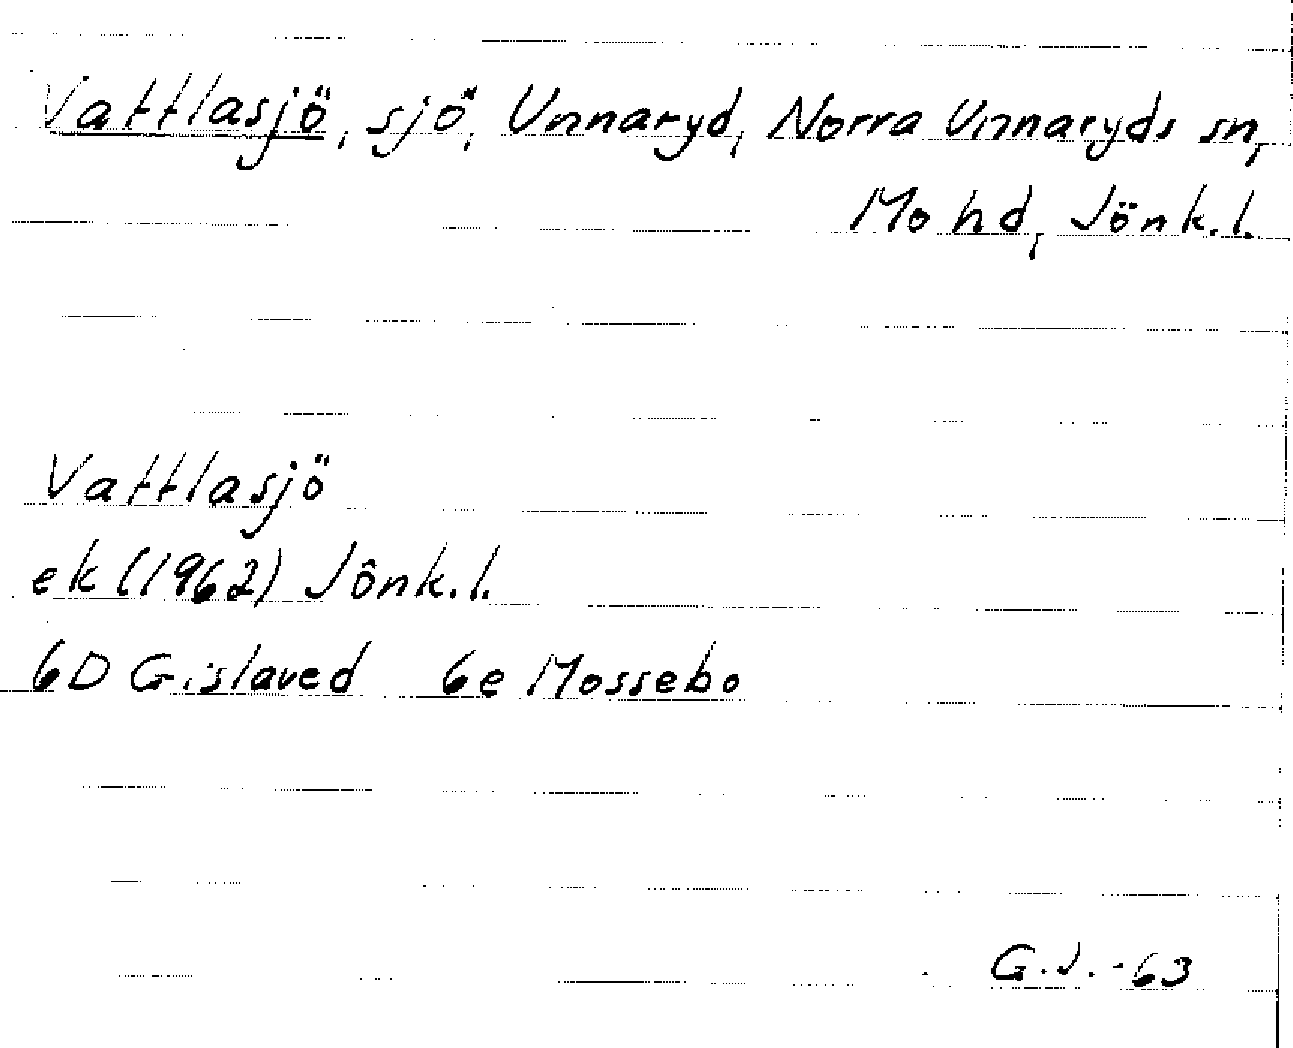 Vattlasjö, sjö, Unnaryd, Norra Unnaryds sn,
Mo hd, Jönk.l.
Vattlasjö
ek (1962) Jönk.l.
6D Gislaved 6e Mossebo
G.J. -63